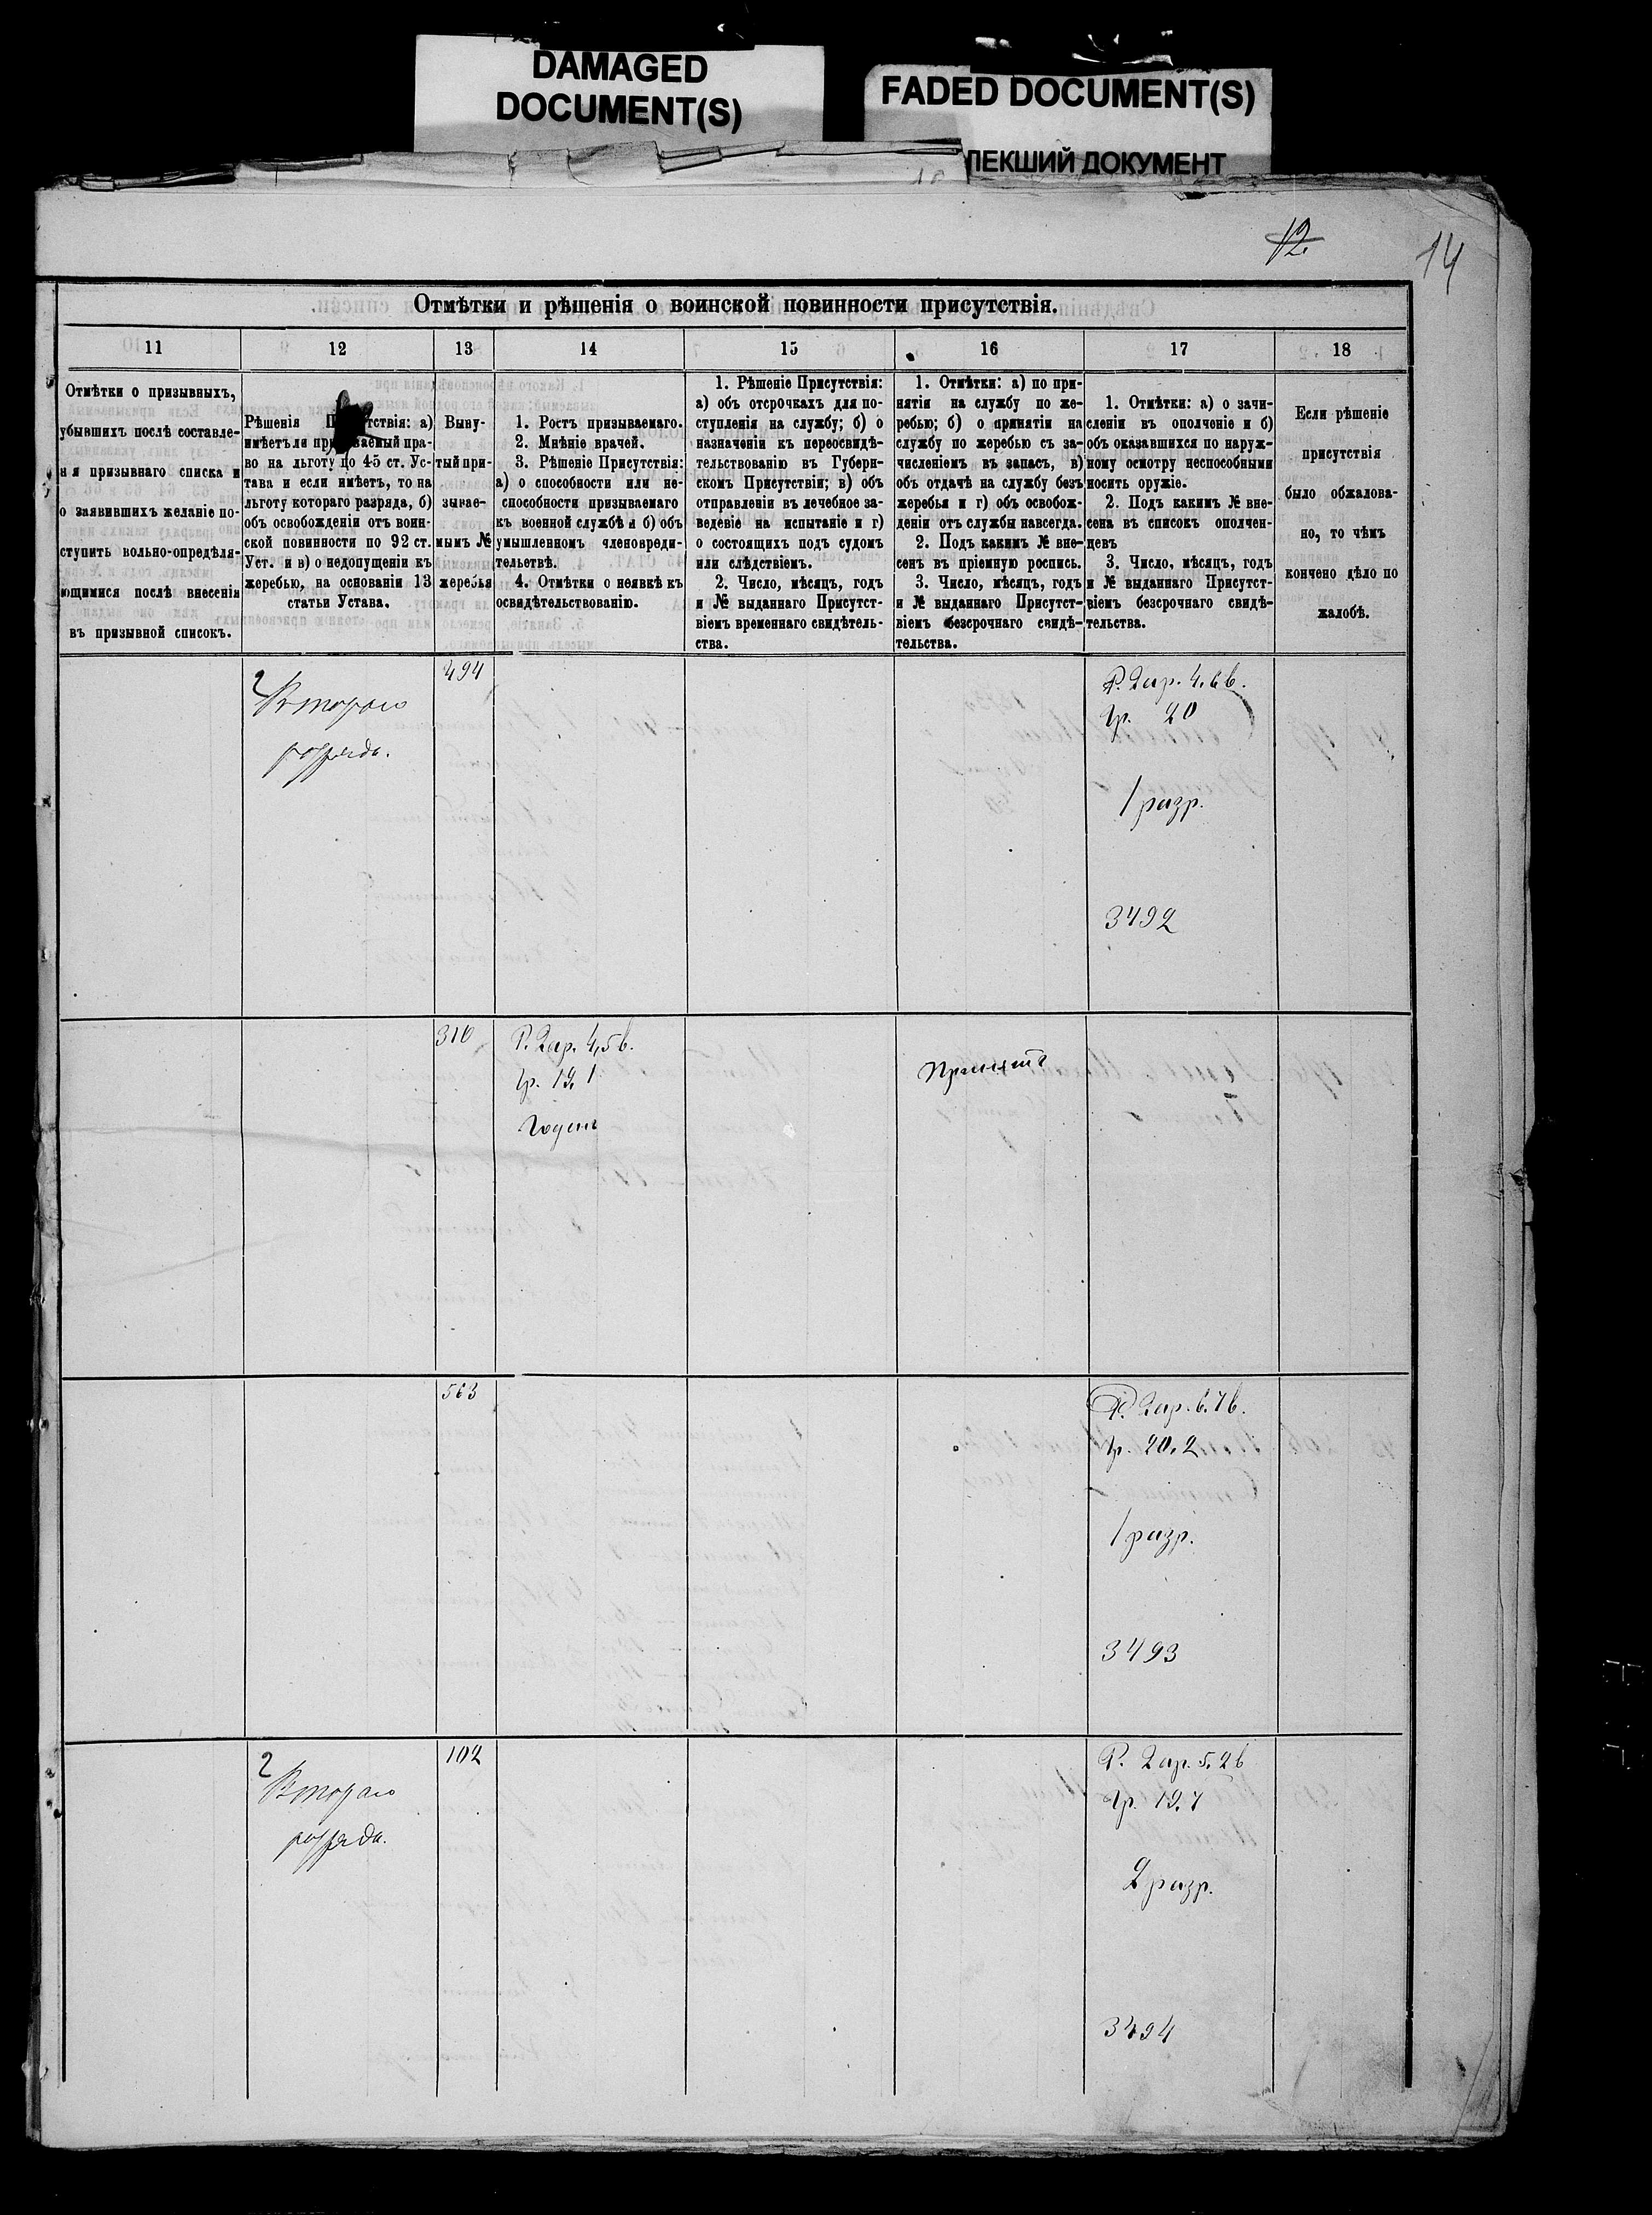 DAMAGED
DOCUMENT(S)
FADED DOCUMENT(S)
ЛЕКШИЙ ДОКУМЕНТ
12
14
Отмѣтки и рѣшенія о воинской повинности присутствія.
11
12
13
14
15
16
17
18
Отмѣтки о призывныхъ,
убывшихъ послѣ составле-
нія призывнаго списка и
о заявившихъ желаніе по-
ступить вольно-опредѣля-
ющимися послѣ внесенія
въ призывной список.
Рѣшенія тствія: а)
имѣетъ ли призываемый пра-
во на льготу по 45 ст. Ус-
тава и если имѣетъ, то на
льготу котораго разряда, б)
объ освобожденіи отъ воин-
ской повинности по 92 ст.
Уст. и в) о недопущеніи къ
жеребью, на основаніи 13
статьи Устава.
Выну-
тый при-
зывае-
мымъ №
жеребья
1. Ростъ призываемаго.
2. Мнѣніе врачей.
3. Рѣшеніе Присутствія:
а) о способности или не-
способности призываемаго
къ военной службѣ и б) объ
умышленномъ членовреди-
тельетвѣ.
4. Отмѣтки о неявкѣ къ
освидѣтельствованію.
1. Рѣшеніе Присутствія:
а) объ отсрочкахъ для по-
ступленія на службу; б) о
назначеніи къ переосвидѣ-
тельствованію въ Губерн-
скомъ Присутствіи; в) объ
отправленіи въ лечебное за-
веденіе на испытаніе и г)
о состоящихъ подъ судомъ
или слѣдствіемъ.
2. Число, мѣсяцъ, годъ
и № выданнаго Присутст-
віемъ временнаго свидѣтель-
ства.
1. Отмѣтки: а) по при-
нятіи на службу по же-
ребью; б) о принятіи на
службу по жеребью съ за-
численіемъ въ запасъ, в)
объ отдачѣ на службу безъ
жеребья и г) объ освобож-
деніи отъ службы навсегда.
2. Подъ какимъ № вне-
сенъ въ пріемную роспись.
3. Число, мѣсяцъ, годъ
и № выданнаго Присутст-
віемъ безсрочнаго свидѣ-
тельства.
1. Отмѣтки: а) о зачи-
сленіи въ ополченіе и б)
объ оказавшихся по наруж-
ному осмотру неспособными
носить оружіе.
2. Подъ какимъ № вне-
сена въ списокъ ополчен-
цевъ
3. Число, мѣсяцъ, годъ
и № выданнаго Присутст-
віемъ безсрочнаго свидѣ-
тельства.
Если рѣшеніе
присутствія
было обжалова-
но, то чѣмъ
кончено дѣло по
жалобѣ.
2
Втораго
разряда.
494
Р. 2 ар. 4, 6 в.
гр. 20
1 разр.
3492
310
Р. 2 ар. 4,5 в.
гр. 19, 1
Годенъ
Принятъ
563
Р. 2 ар. 6. 7 в.
гр. 20,2
1 разр.
3493
2
Втораго
разряда.
102
Р. 2 ар. 5, 2 в
гр. 19,7
2 разр.
3494